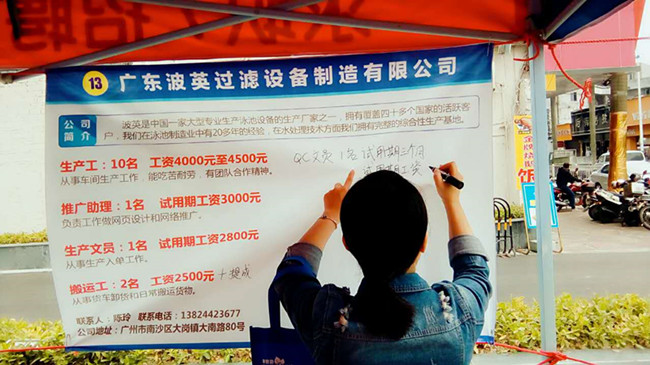 招聘
13 广东波英过滤设备制造有限公司
公司简介
波英是中国一家大型专业生产泳池设备的生产厂家之一，拥有覆盖四十多个国家的活跃客
户，我们在泳池制造业中有20多年的经验，在水处理技术方面我们拥有完整的综合性生产基地。
生产工：10名 工资4000元至4500元
从事车间生产工作，能吃苦耐劳，有团队合作精神。
QC文员 1名 试用期三个月
试用期工资
推广助理：1名 试用期工资3000元
负责工作做网页设计和网络推广。
生产文员：1名 试用期工资2800元
从事生产入单工作。
搬运工：2名 工资2500元 +提成
从事货车卸货和日常搬运货物。
联系人：陈玲 联系电话：13824423677
公司地址：广州市南沙区大岗镇大南路80号
饭